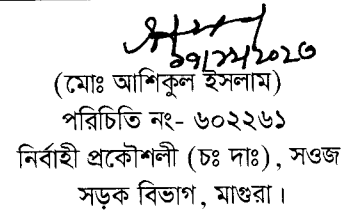 ১৭/১২/২০২৩
(মোঃ আশিকুল ইসলাম)
পরিচিতি নং- ৬০২২৬১
নির্বাহী প্রকৌশলী (চঃ দাঃ), সওজ
সড়ক বিভাগ, মাগুরা।